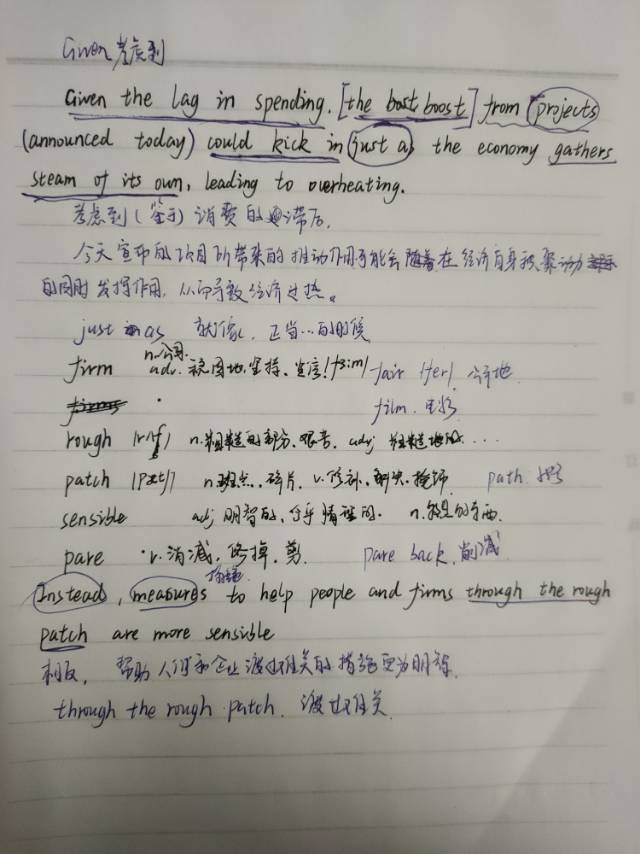 Given 考虑到
Given the lag in spending, [the bost boost] from projects
(announced today) could kick in just as the economy gathers
steam of its own, leading to overheating.
考虑到(鉴于)消费的滞后,
今天宣布的项目所带来的推动作用可能会随着在经济自身积聚动
的同时发挥作用,从而导致经济过热。
just as 就像, 正当...的时候
n.公司.
firm adv. 稳固地,坚持、坚信 fair 公平地
film.
rough n.粗糙的部分、艰苦、adj 粗糙地的...
patch n.斑点、碎片、v.修补、解决、掩饰 path.
sensible adj 明智的、合乎情理的. n.
pare v.消减、修掉、剪. pare back. 削减
措施.
Instead, measures to help people and firms through the rough
patch are more sensible
相反, 帮助人们和企业渡过难关的措施更为明智.
through the rough patch. 渡过难关.